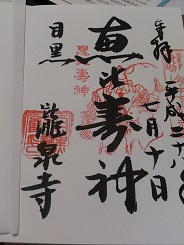 奉拝
平成二十八年
七月十日
恵比寿神
目黒
瀧泉寺